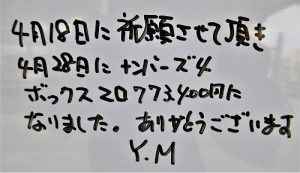 4月18日に祈願させて頂き
4月28日にナンバーズ4
ボックス2口773,400円に
なりました。ありがとうございます
Y.M